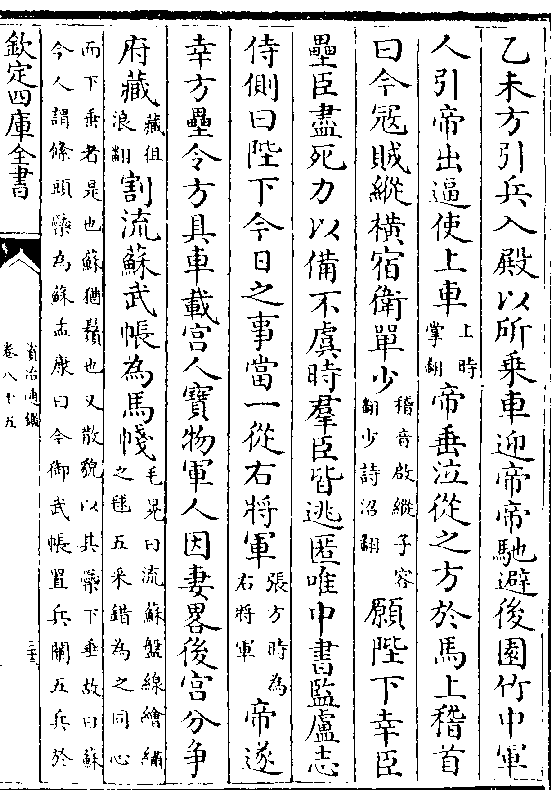 乙未方引兵入殿以所乗車迎帝帝馳避後園竹中軍
人引帝出逼使上車上時掌翻帝垂泣從之方於馬上稽首
曰今寇賊縱横宿衛單少稽音啟縱子容翻少詩沼翻願陛下幸臣
壘臣盡死力以備不虞時羣臣皆逃匿唯中書監盧志
侍側曰陛下今日之事當一從右將軍張方時為右將軍帝遂
幸方壘令方具車載宫人寶物軍人因妻畧後宫分争
府藏藏徂浪翻割流蘇武帳為馬㡞毛晃曰流蘇盤線繪繡之毬五采錯為之同心
而下垂者是也蘇猶鬚也又散貌以其蘂下垂故曰蘇
今人謂絛頭蘂為蘇孟康曰今御武帳置兵闌五兵於
欽定四庫全書
資治通鑑
卷八十五